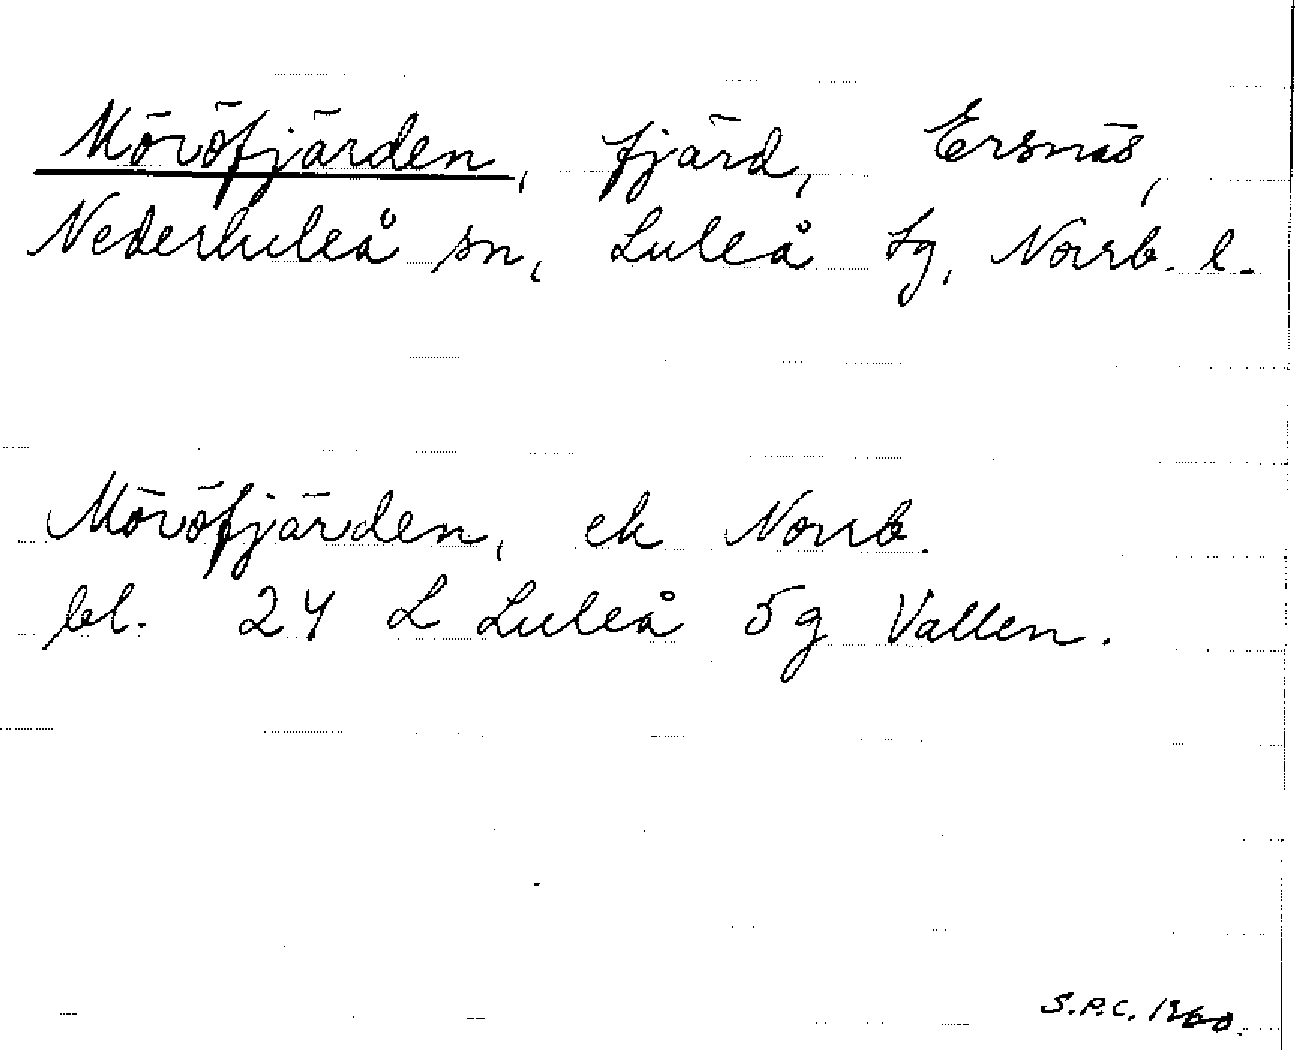 Möröfjärden, fjärd, Ersnäs,
Nederluleå sn, Luleå tg, Norrb. l.
Möröfjärden, ek Norrb.
bl. 24 L Luleå 5g Vallen.
S.P.C. 1960.